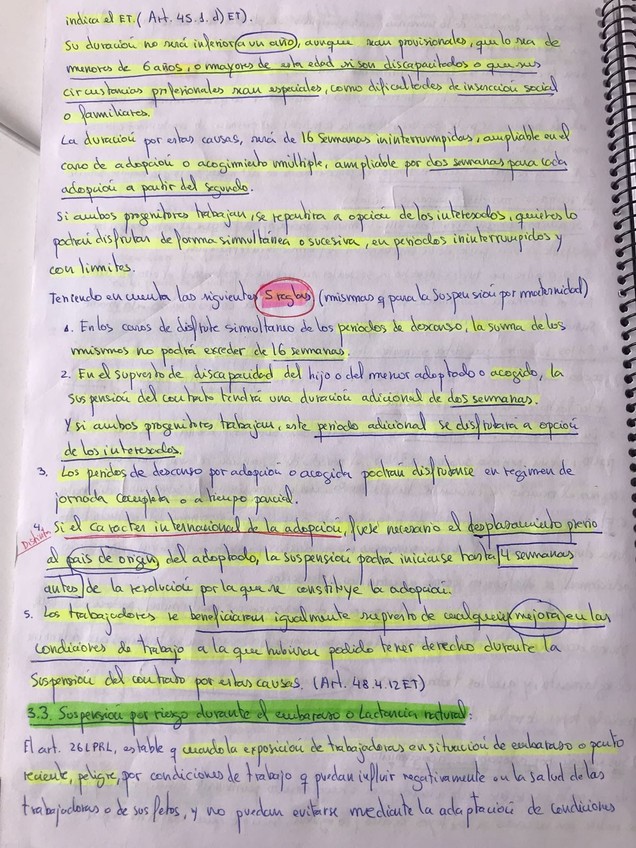 indica el ET. (Art. 45.1. d) ET).
Su duración no será inferior a un año, aunque sean provisionales, que lo sea de
menores de 6 años, o mayores de esta edad si son discapacitados o que sus
circustancias profesionales sean especiales, como dificultades de insercción social
o familiares.
La duración por estas causas, será de 16 semanas ininterrumpidas, ampliable en el
caso de adopción o acogimiento múltiple, ampliable por dos semanas para cada
adopción a partir del segundo.
Si ambos progenitores trabajan, se repartira a opción de los interesados, quienes lo
podrán disfrutar de forma simultánea o sucesiva, en periodos ininterrumpidos y
con limites.
Teniendo en cuenta las siguientes 5 reglas (mismas q para la suspensión por maternidad)
1. En los casos de disfrute simultaneo de los periodos de descanso, la suma de los
mismos no podrá exceder de 16 semanas.
2. En el supuesto de discapacidad del hijo o del menor adoptado o acogido, la
suspensión del contrato tendrá una duración adicional de dos semanas.
Y si ambos progenitores trabajan, este periodo adicional se disfrutará a opción
de los interesados.
3. Los periodos de descanso por adopción o acogida podrán disfrutarse en regimen de
jornada completa o a tiempo parcial.
4. Si el caracter internacional de la adopción, fuese necesario el desplazamiento previo
al pais de origen del adoptado, la suspensión podrá iniciarse hasta 4 semanas
antes de la resolución por la que se constituye la adopción.
5. Los trabajadores se beneficiaran igualmente supuesto de cualquier mejora en las
condiciones de trabajo a la que hubieran podido tener derecho durante la
suspensión del contrato por estas causas. (Art. 48.4.12 ET)
3.3. Suspensión por riesgo durante el embarazo o Lactancia natural:
El art. 26 LPRL, estable q cuando la exposición de trabajadoras en situación de embarazo o parto
reciente, peligre, por condiciones de trabajo q puedan influir negativamente en la salud de las
trabajadoras o de sus fetos, y no puedan evitarse mediante la adaptación de condiciones